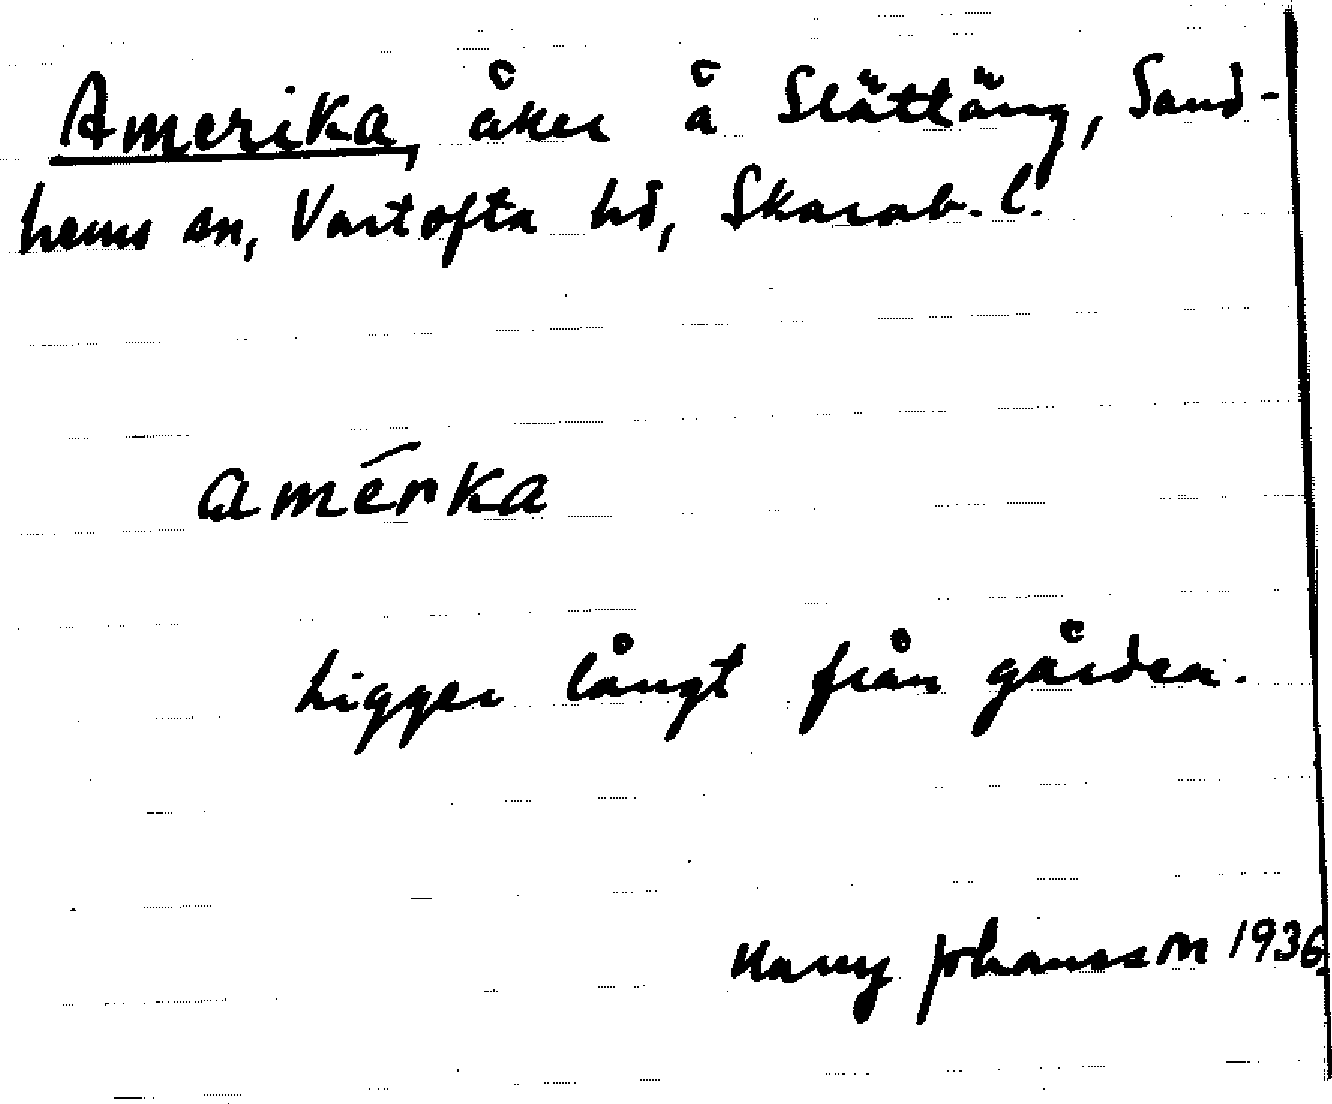 Amerika, åker å Slättäng, Sand-
hems sn, Vartofta hd, Skarab. l.
amérka
Ligger långt från gården.
Harry Johansson 1936.